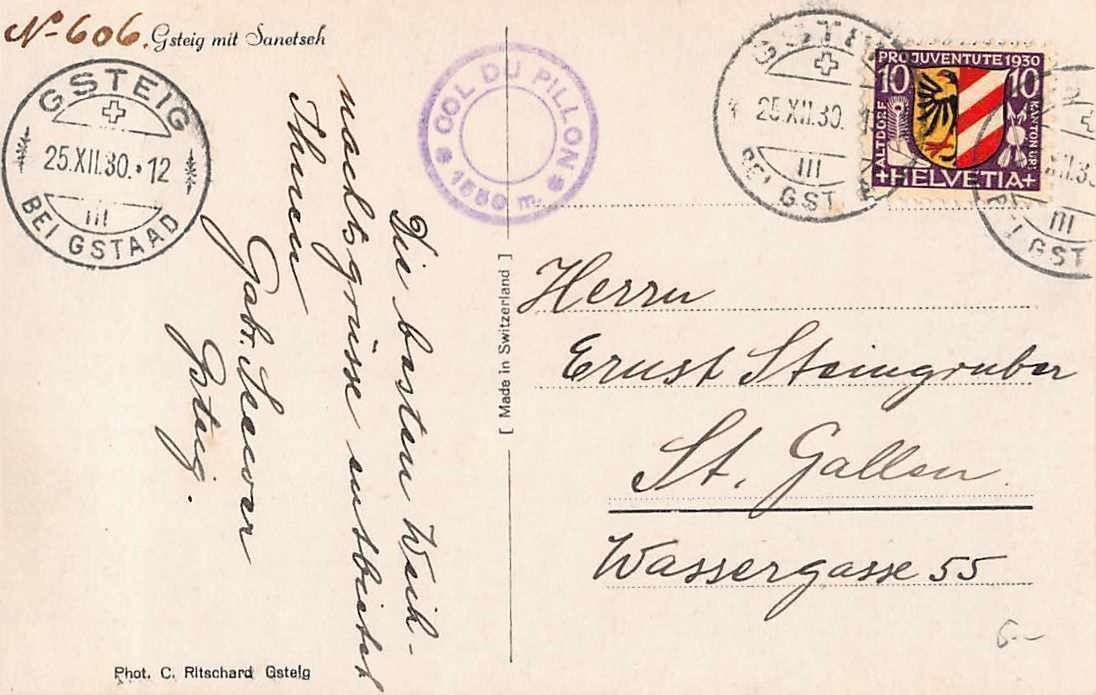 Nº 606.
Gsteig mit Sanetsch
GSTEIG
25.XII.30.•12
III
BEI GSTAAD
COL DU PILLON
1550 m.
GSTEIG
25.XII.30.
III
BEI GST
PRO JUVENTUTE 1930
10 10
ALTDORF
KANTON URI
HELVETIA
III
BEI GST
Die besten Weih-
nachtsgrüsse entbietet
Ihnen
Gsteig.
[ Made in Switzerland ]
Herrn
Ernst Steingruber
St. Gallen
Wassergasse 55
Phot. C. Ritschard Gsteig